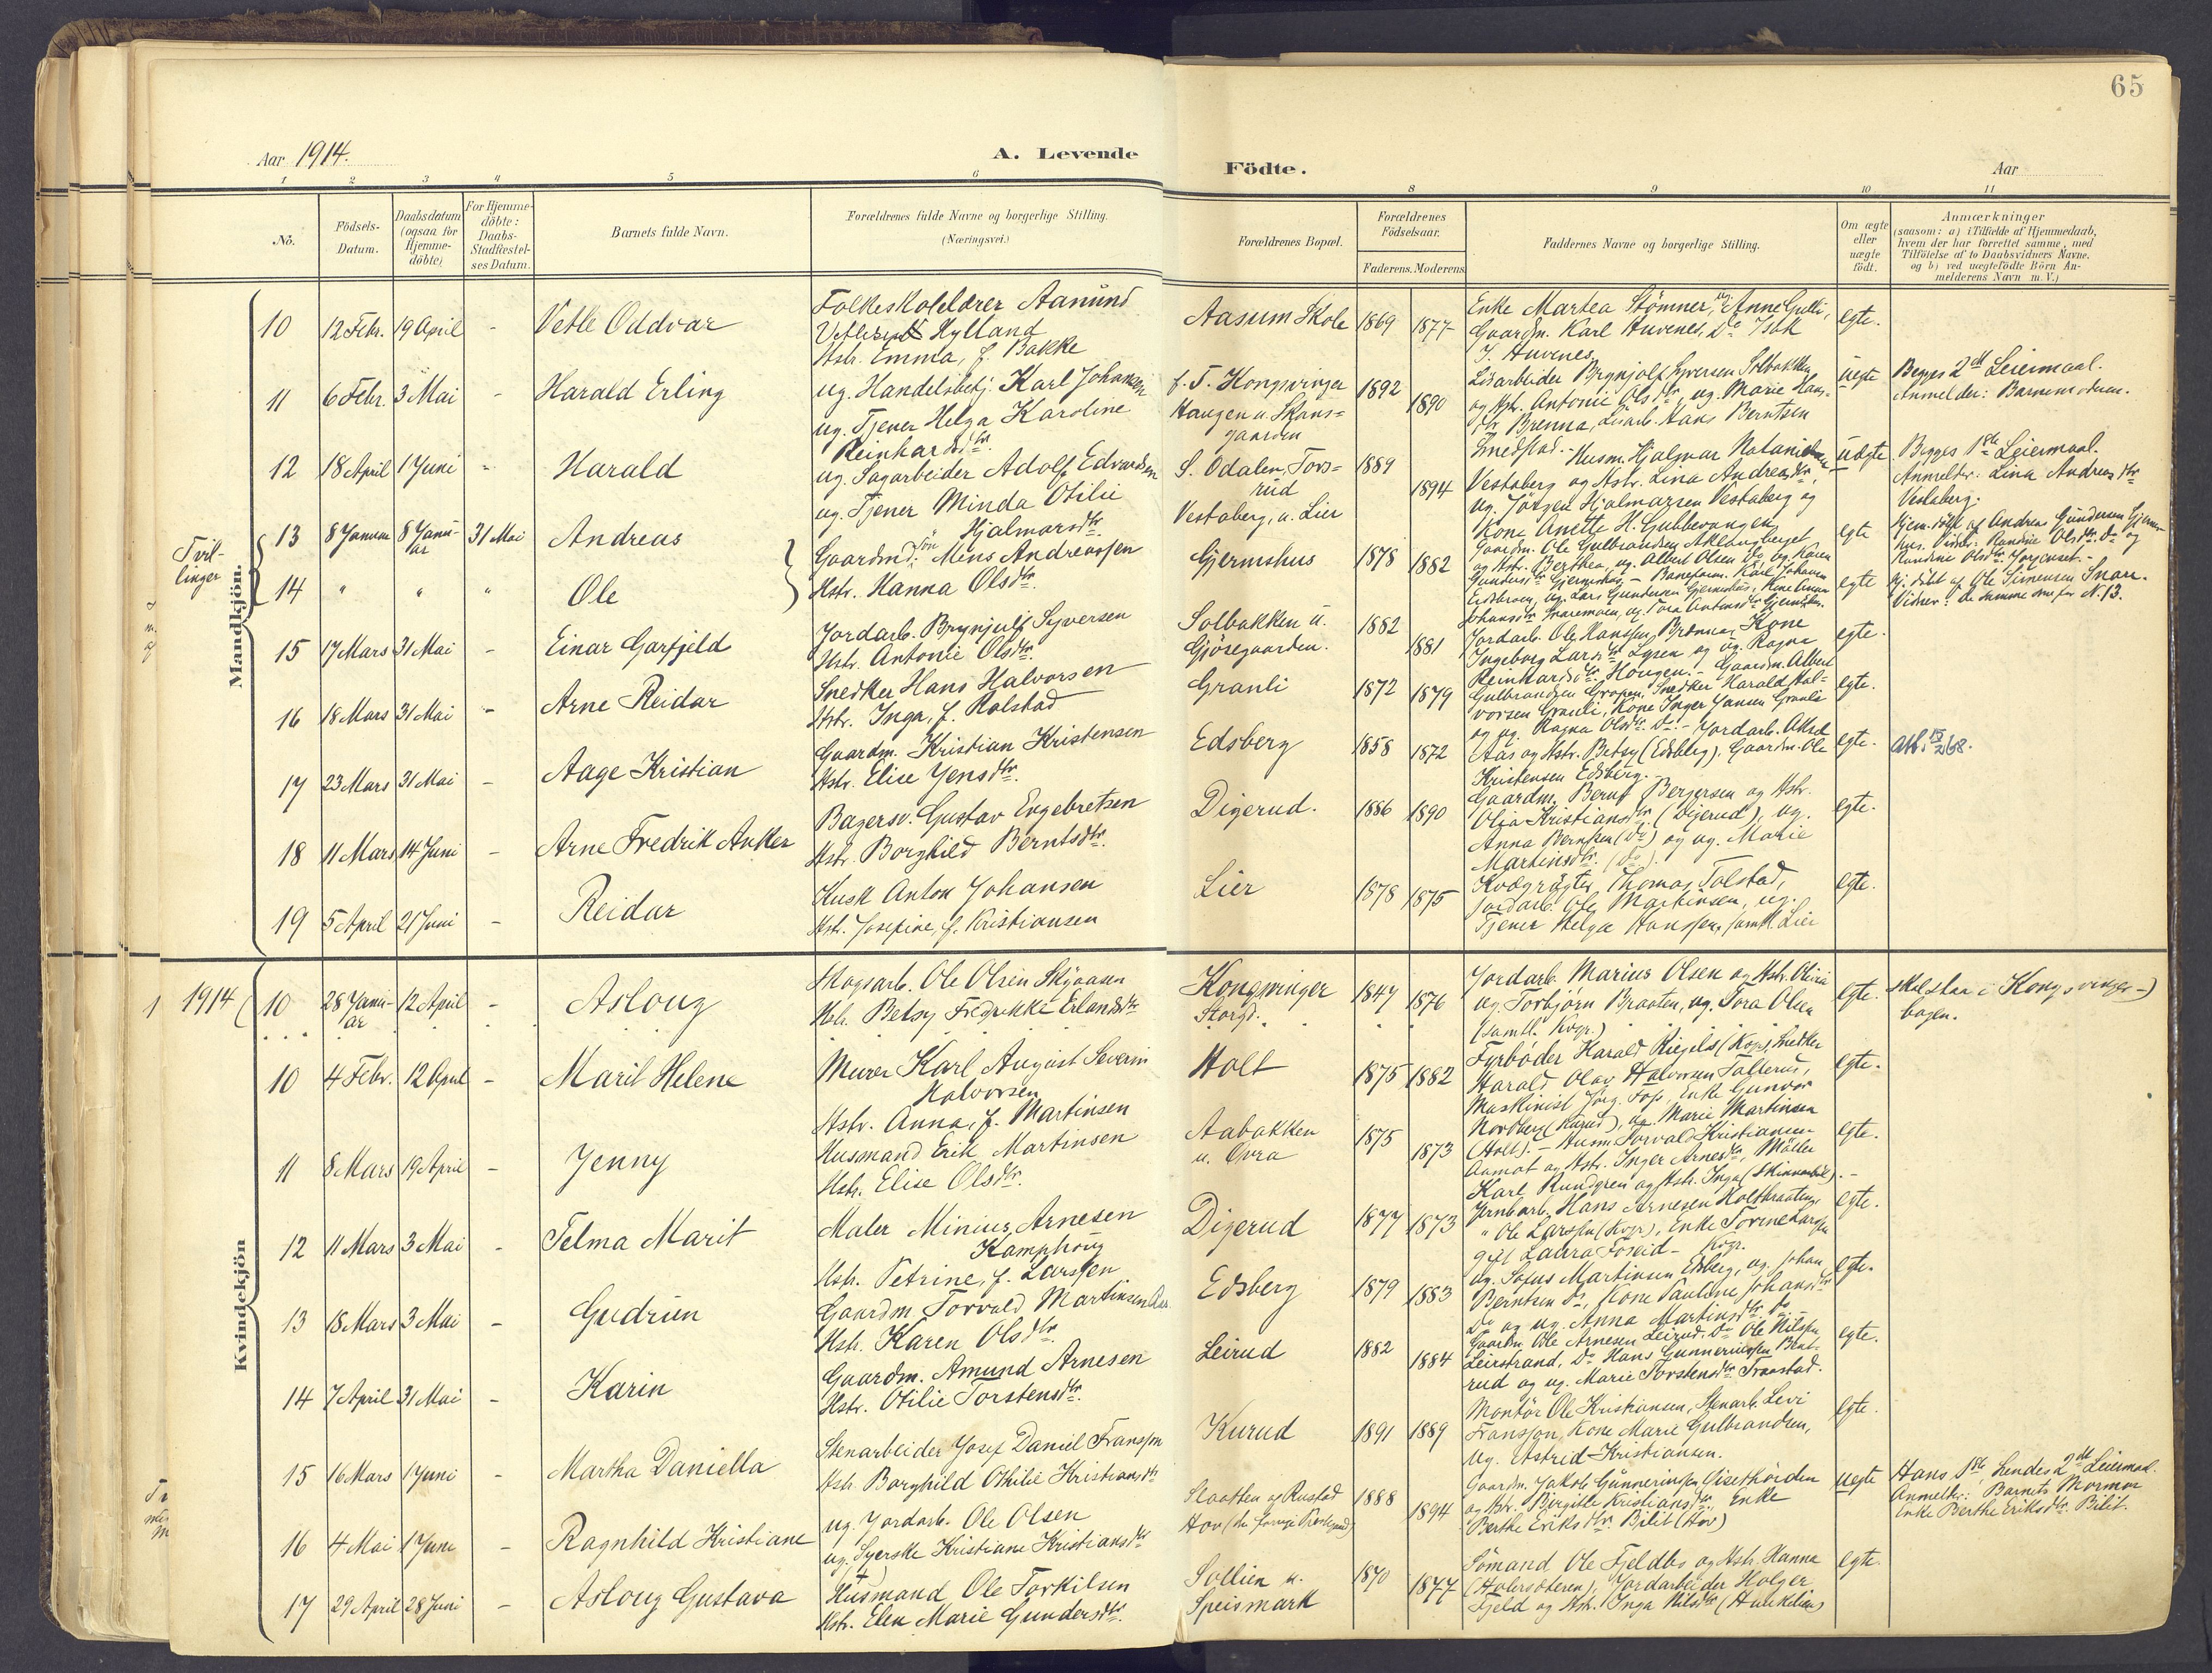 65
Aar 1914.
A. Levende
Födte.
Aar
1 2 3 4 5 6 8 9 10 11
No.
Födsels-
Datum.
Daabsdatum
(ogsaa for
Hjemme-
döbte)
For Hjemme-
döbte:
Daabs-
Stadfæstel-
ses Datum.
Barnets fulde Navn.
Forældrenes fulde Navne og borgerlige Stilling.
(Næringsvei.)
Forældrenes Bopæl.
Forældrenes
Födselsaar.
Faderens. Moderens.
Faddernes Navne og borgerlige Stilling.
Om ægte
eller
uægte
födt.
Anmærkninger
(saasom: a) i Tilfælde af Hjemmedaab,
hvem der har forrettet samme, med
Tilföielse af to Daabsvidners Navne.
og b) ved uægtefödte Börn An-
melderens Navn m. V.)
Mandkjön.
10 12 Febr. 19 April - Vetle Oddvar
Folkeskolelærer Aanund
Hylland
Hstr. Emma, f. Bakke
Aasum Skole 1869 1877
Enke Martea Stömner, ug. Anne Gulli,
Gaardm. Karl Huvenes, Do Isak
J. Huvenes.
egte.
11 6 Febr. 3 Mai - Harald Erling
ug. Handelsbetj. Karl Johansen
ug. Tjener Helga Karoline
Reinhardsdtr.
f. T. Kongsvinger
Haugen u. Skans=
gaarden
1892 1890
Antonie Olsdtr, ug. Marie Hans-
dtr Brenna, Hans Berntsen
Smedstad.
uegte
Begges 2det Leiermaal.
Anmelder: Barnemoderen.
12 18 April 1 Juni - Harald
ug. Sagarbeider Adolf Edvardsen
ug. Tjener Minda Otilie
Hjalmarsdtr.
S. Odalen, Tors=
rud
Vestaberg, u. Lier
1889 1894
Husm. Hjalmar Natanielsen
Vestaberg og Hstr. Lina Andreasdtr,
ug. Jörgen Hjalmarsen Vestaberg og
Kone Anette H. Gubbevangen
uegte
Begges 1ste Leiermaal.
Anmelder: Lina Andreasdtr
Vestaberg.
Tvil-
linger
13 8 Januar 8 Janu-
ar 31 Mai Andreas
14 " " " Ole
Gaardmd. Mens Andreassen
Hstr. Hanna Olsdtr.
Gjermshus 1878 1882
egte
egte
Vidner: de samme som for N. 13.
15 17 Mars 31 Mai - Einar Garfjeld
Jordarb. Brynjulf Syversen
Hstr. Antonie Olsdtr.
Solbakken u.
Gjösegaarden.
1882 1881
Jordarb. Ole Hanssen Brenna, Kone
Ingeborg Larsdtr Lysen og ug. Ragna
Reinhardsdtr Hougen.
egte.
16 18 Mars 31 Mai - Arne Reidar
Snedker Hans Halvorsen
Hstr. Inga, f. Rolstad
Granli 1872 1879
Gaardm. Albert
Gulbrandsen Gropen, Snedker Harald Hal-
vorsen Granli, Kone Inger Jansen Granli
og ug. Ragna Olsdtr. Do.
egte.
17 23 Mars 31 Mai - Aage Kristian
Gaardm. Kristian Kristensen
Hstr. Elise Jensdtr.
Edsberg 1858 1872
Jordarb. Aksel
Aas og Hstr. Betsy (Edsberg). Gaardm. Ole
Kristensen Edsberg.
egte.
att. 15/2 68.
18 11 Mars 14 Juni - Arne Fredrik Anker
Bagersv. Gustav Engebretsen
Hstr. Borghild Berntsdtr.
Digerud. 1886 1890
Gaardm. Bernt Bergersen og Hstr.
Olia Kristiansdtr (Digerud), ug.
Anna Berntsen (Do) og ug. Marie
Martinsdtr. (Do).
egte.
19 5 April 21 Juni - Reidar
Kusk Anton Johansen
Hstr. Josefine, f. Kristiansen
Lier 1878 1875
Kvægrögter Thomas Tolstad,
Jordarb. Ole Martinsen, ug.
Tjener Helga Hanssen, samtl. Lier
egte.
Kvindekjön
1 1914
10 28 Janu-
ar 12 April - Asloug
Skogsarb. Ole Olsen Skÿaasen
Hstr. Betsy Fredrikke Erlandsdtr
Kongsvinger
Storgd.
1847 1876
Jordarb. Marius Olsen og Hstr. Olivia
ug. Torbjörn Braaten, ug. Tora Olsen
(samtl. Kvgr.)
egte.
skal staa i Kongsvinger-
bogen.
10 4 Febr. 12 April - Marit Helene
Murer Karl August Severin
Halvorsen
Hstr. Anna, f. Martinsen
Holt 1875 1882
Fyrböder Harald Riegels (Kvgr), Snedker
Harald Olav Halvorsen Tallerud,
Maskinist Jörg. Foss, Enke Gunvor
Nordberg (Kurud), ug. Marie Martinsen
(Holt).
egte.
11 8 Mars 19 April - Jenny
Husmand Erik Martinsen
Hstr. Elise Olsdtr.
Aabakken
u. Övra
1875 1873
Husm. Torvald Kristiansen
Aamot og Hstr. Inger Arnesdtr, Möller
Karl Rundgren og Hstr. Inga (Skinnarböl).
egte.
12 11 Mars 3 Mai - Telma Marit
Maler Minius Arnesen
Kamphoug
Hstr. Petrine, f. Larssen
Digerud 1877 1873
Jernbarb. Hans Arnesen Holtbraaten,
" Ole Larssen (Kvgr.), Enke Torine Larssen
gift Laura Foseid - Kvgr.
egte.
13 18 Mars 3 Mai - Gudrun
Gaardm. Torvald Martinsen
Hstr. Karen Olsdtr.
Edsberg 1879 1883
ug. Sofus Martinsen Edsberg, ug. Johan
Berntsen Do, Kone Pauline Johansdtr
Do og ug. Anna Martinsdtr Do.
egte.
14 7 April 31 Mai - Karin
Gaardm. Amund Arnesen
Hstr. Otilie Torstensdtr.
Leirud 1882 1884
Gaardm. Ole Arnesen Leirud. Do Ole Nilssen
Leirstrand, Do Hans Gunneriussen Bent-
rud og ug. Marie Torstensdtr Traastad.
egte.
15 16 Mars 1 Juni - Martha Daniella
Stenarbeider Josef Daniel Fransson
Hstr. Borghild Othilie Kristiansdtr
Kurud 1891 1889
Montör Ole Kristiansen, Stenarb. Levi
Fransson, Kone Marie Gulbrandsen,
ug. Astrid Kristiansen.
egte.
16 4 Mai 1 Juni - Ragnhild Kristiane
ug. Jordarb. Ole Olsen
ug. Syerske Kristiane Kristiansdtr
Slaatten og Rustad
1888 1894
Gaardm. Jakob Gunneriussen
og Hstr. Birgitte Kristiansdtr, Enke
Berthe Eriksdtr. Bilit (Hov)
uegte
Hans 1ste, hendes 2det Leiermaal.
Anmelder: Barnets Mormor
Enke Berthe Eriksdtr. Bilit.
17 29 April 28 Juni - Asloug Gustava
Husmand Ole Torkilsen
Hstr. Elen Marie Gundersdtr.
Sollien u.
Speismark
1870 1877
Sömand Ole Fjeldbo og Hstr. Hanna
Jordarbeider Holger
Fjeld og Hstr. Inga Nilsdtr
egte.